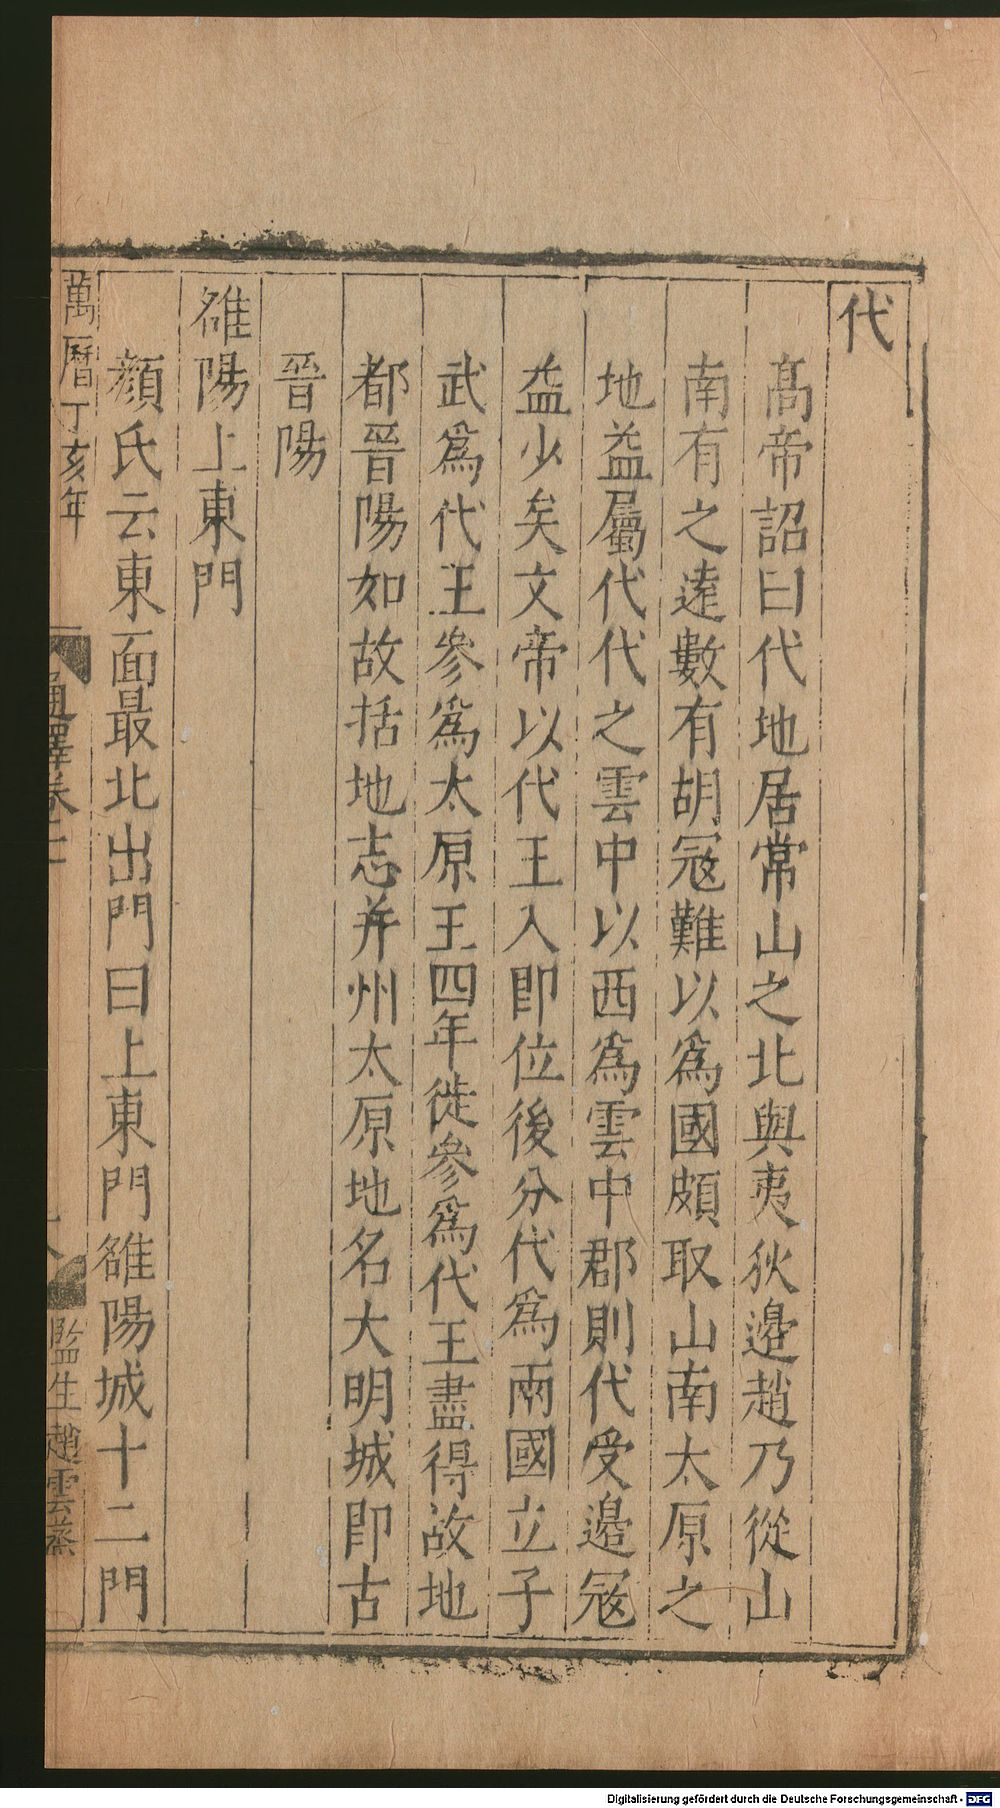 代
高帝詔曰代地居常山之北與夷狄邊趙乃從山
南有之遠數有胡冦難以爲國頗取山南太原之
地益屬代代之雲中以西爲雲中郡則代受邊冦
益少矣文帝以代王入即位後分代爲兩國立子
武爲代王參爲太原王四年徙參爲代王盡得故地
都晉陽如故括地志并州太原地名大明城即古
晉陽
雒陽上東門
顏氏云東面最北出門曰上東門雒陽城十二門
萬曆丁亥年
通釋卷十二
監生趙雲
Digitalisierung gefördert durch die Deutsche Forschungsgemeinschaft - DFG